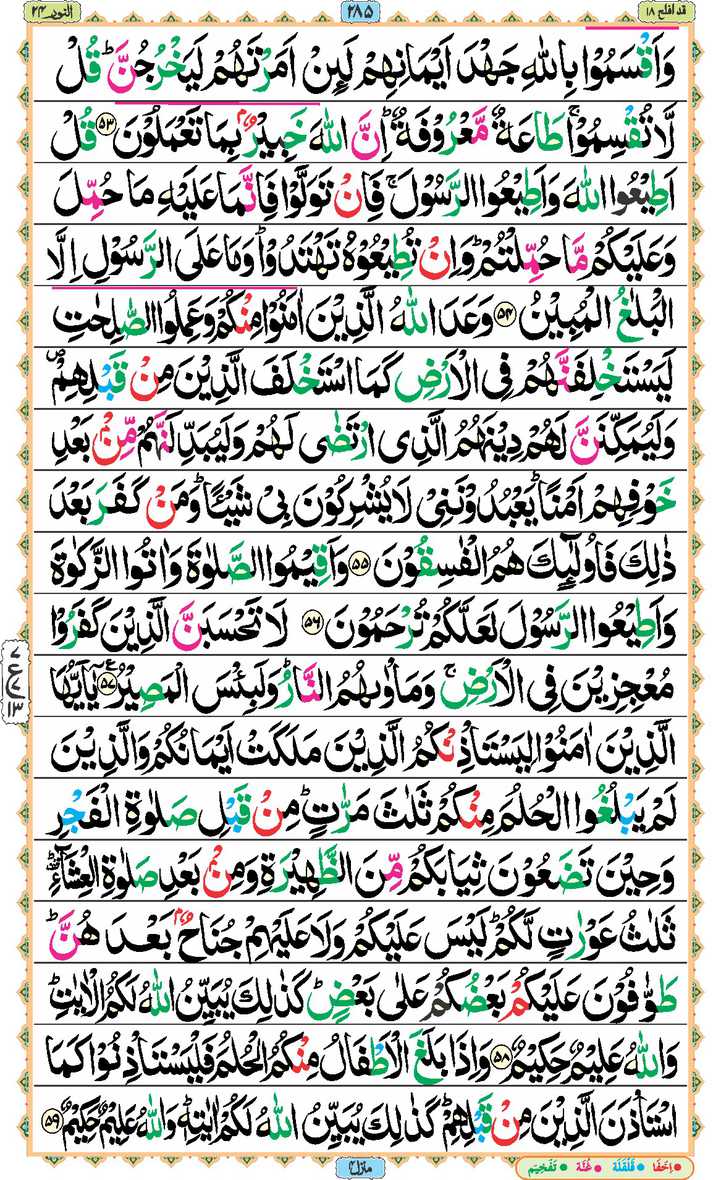 قد افلح ۱۸
۲۸۵
النور ۲۴
وَاَقۡسَمُوۡا بِاللّٰهِ جَهۡدَ اَيۡمَانِهِمۡ لَئِنۡ اَمَرۡتَهُمۡ لَيَخۡرُجُنَّ‌ؕ قُلْ
لَّا تُقۡسِمُوۡا‌ۚ طَاعَةٌ مَّعۡرُوۡفَةٌ‌ ؕ اِنَّ اللّٰهَ خَبِيۡرٌۢ بِمَا تَعۡمَلُوۡنَ‏ ﴿۵۳﴾ قُلۡ
اَطِيۡعُوا اللّٰهَ وَاَطِيۡعُوا الرَّسُوۡلَ‌ۚ فَاِنۡ تَوَلَّوۡا فَاِنَّمَا عَلَيۡهِ مَا حُمِّلَ
وَعَلَيۡكُمۡ مَّا حُمِّلۡتُمۡ‌ؕ وَاِنۡ تُطِيۡعُوۡهُ تَهۡتَدُوۡا‌ؕ وَمَا عَلَى الرَّسُوۡلِ اِلَّا
الۡبَلٰغُ الۡمُبِيۡنُ‏ ﴿۵۴﴾ وَعَدَ اللّٰهُ الَّذِيۡنَ اٰمَنُوۡا مِنۡكُمۡ وَعَمِلُوا الصّٰلِحٰتِ
لَيَسۡتَخۡلِفَنَّهُمۡ فِى الۡاَرۡضِ كَمَا اسۡتَخۡلَفَ الَّذِيۡنَ مِنۡ قَبۡلِهِمۡ ص
وَلَيُمَكِّنَنَّ لَهُمۡ دِيۡنَهُمُ الَّذِى ارۡتَضٰى لَهُمۡ وَلَيُبَدِّلَنَّهُمۡ مِّنۡۢ بَعۡدِ
خَوۡفِهِمۡ اَمۡنًا‌ ؕ يَعۡبُدُوۡنَنِىۡ لَا يُشۡرِكُوۡنَ بِىۡ شَيۡــًٔــا‌ ؕ وَمَنۡ كَفَرَ بَعۡدَ
ذٰ لِكَ فَاُولٰٓٮِٕكَ هُمُ الۡفٰسِقُوۡنَ‏ ﴿۵۵﴾ وَاَقِيۡمُوا الصَّلٰوةَ وَ اٰتُوا الزَّكٰوةَ
وَاَطِيۡـعُوا الرَّسُوۡلَ لَعَلَّكُمۡ تُرۡحَمُوۡنَ‏ ﴿۵۶﴾ لَا تَحۡسَبَنَّ الَّذِيۡنَ كَفَرُوۡا
مُعۡجِزِيۡنَ فِى الۡاَرۡضِ‌ۚ وَمَاۡوٰٮهُمُ النَّارُ‌ؕ وَلَبِئۡسَ الۡمَصِيۡرُ‏ ﴿۵۷﴾ يٰۤاَيُّهَا
الَّذِيۡنَ اٰمَنُوۡا لِيَسۡتَاۡذِنۡكُمُ الَّذِيۡنَ مَلَكَتۡ اَيۡمَانُكُمۡ وَالَّذِيۡنَ
لَمۡ يَـبۡلُغُوا الۡحُـلُمَ مِنۡكُمۡ ثَلٰثَ مَرّٰتٍ‌ؕ مِنۡ قَبۡلِ صَلٰوةِ الۡفَجۡرِ
وَحِيۡنَ تَضَعُوۡنَ ثِيَابَكُمۡ مِّنَ الظَّهِيۡرَةِ وَمِنۡۢ بَعۡدِ صَلٰوةِ الۡعِشَآءِ‌ ؕ
ثَلٰثُ عَوۡرٰتٍ لَّـكُمۡ‌ ؕ لَـيۡسَ عَلَيۡكُمۡ وَ لَا عَلَيۡهِمۡ جُنَاحٌۢ بَعۡدَهُنَّ‌ ؕ
طَوّٰفُوۡنَ عَلَيۡكُمۡ بَعۡضُكُمۡ عَلٰى بَعۡضٍ‌ ؕ كَذٰلِكَ يُبَيِّنُ اللّٰهُ لَـكُمُ الۡاٰيٰتِ‌ ؕ
وَاللّٰهُ عَلِيۡمٌ حَكِيۡمٌ‏ ﴿۵۸﴾ وَاِذَا بَلَغَ الۡاَطۡفَالُ مِنۡكُمُ الۡحُـلُمَ فَلۡيَسۡتَاۡذِنُوۡا كَمَا
اسۡتَـاۡذَنَ الَّذِيۡنَ مِنۡ قَبۡلِهِمۡ‌ ؕ كَذٰلِكَ يُبَيِّنُ اللّٰهُ لَـكُمۡ اٰيٰتِهٖ‌ ؕ وَاللّٰهُ عَلِيۡمٌ حَكِيۡمٌ‏ ﴿۵۹﴾
منزل ۴
اِخفَا قَلْقَلَة غُنَّة تَفْخِيم